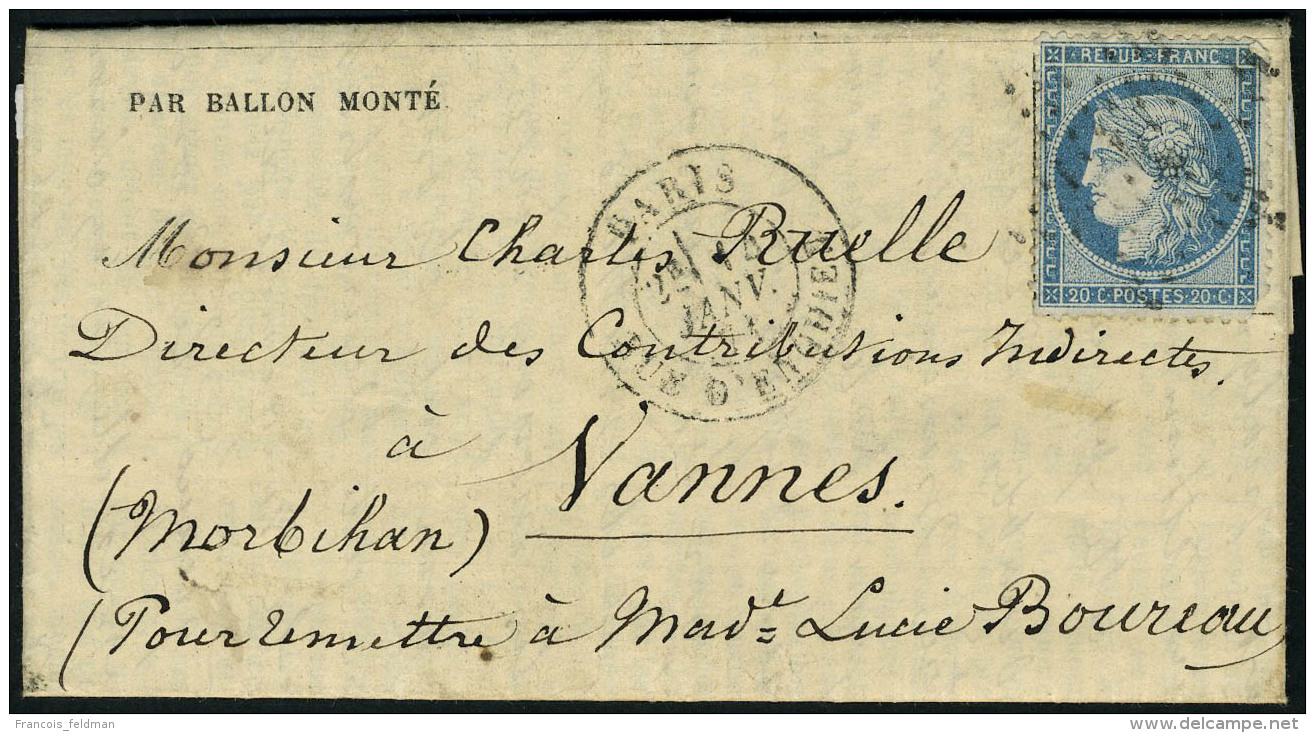 REPUB·FRANC·
PAR BALLON MONTÉ.
PARIS
JANV.
RUE D'ENGHIEN
20·C·POSTES·20·C·
Monsieur Charles Ruelle
Directeur des Contributions Indirectes.
à Vannes.
(Morbihan)
(Pour remettre à Made Lucie Boureau)
Francois_feldman
delcampe.net